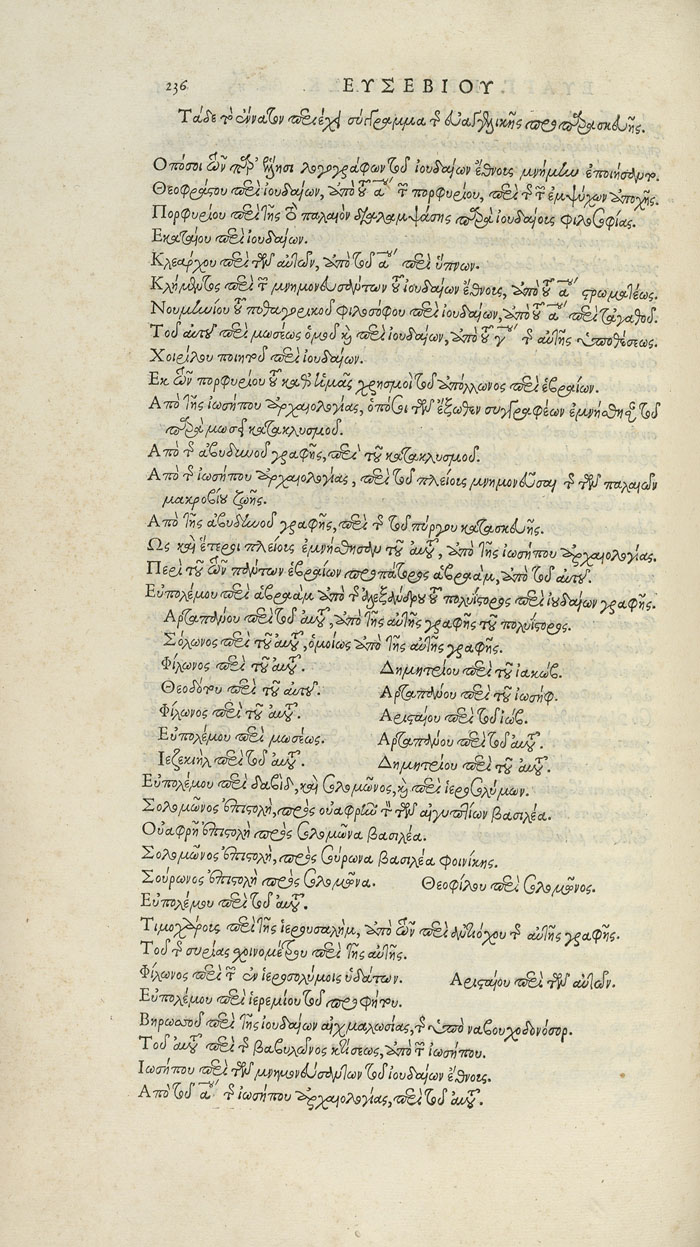 236 ΕΥΣΕΒΙΟΥ.
Τάδε τὸ ἔννατον περιέχει σύγγραμμα τῆς εὐαγγελικῆς προπαρασκευῆς.
Οπόσοι τῶν παρ' Ἕλλησι λογογράφων τοῦ ἰουδαίων ἔθνους μνήμην ἐποιήσαντο.
Θεοφράστου περὶ ἰουδαίων, ἀπὸ τοῦ α΄ τῶν πορφυρίου, περὶ τῆς τῶν ἐμψύχων ἀποχῆς.
Πορφυρίου περὶ τῆς τὸ παλαιὸν διαλαμψάσης παρὰ ἰουδαίοις φιλοσοφίας.
Εκαταίου περὶ ἰουδαίων.
Κλεάρχου περὶ τῶν αὐτῶν, ἀπὸ τοῦ α΄ περὶ ὕπνων.
Κλήμεντος περὶ τῶν μνημονευσάντων τοῦ ἰουδαίων ἔθνους, ἀπὸ τοῦ α΄ στρωματέως.
Νουμηνίου τοῦ πυθαγορικοῦ φιλοσόφου περὶ ἰουδαίων, ἀπὸ τοῦ α΄ περὶ τἀγαθοῦ.
Τοῦ αὐτοῦ περὶ μωσέως ὁμοῦ καὶ περὶ ἰουδαίων, ἀπὸ τοῦ γ΄ τῆς αὐτῆς ὑποθέσεως.
Χοιρίλου ποιητοῦ περὶ ἰουδαίων.
Εκ τῶν πορφυρίου τοῦ καθ' ἡμᾶς χρησμοὶ τοῦ ἀπόλλωνος περὶ ἑβραίων.
Από τῆς ἰωσήπου ἀρχαιολογίας, ὁπόσοι τῶν ἔξωθεν συγγραφέων ἐμνήσθησαν τοῦ
παρὰ μωσεῖ κατακλυσμοῦ.
Από τῆς ἀβυδινοῦ γραφῆς, περὶ τοῦ κατακλυσμοῦ.
Από τῆς ἰωσήπου ἀρχαιολογίας, περὶ τοῦ πλείους μνημονεῦσαι τῆς τῶν παλαιῶν
μακροβίου ζωῆς.
Από τῆς ἀβυδινοῦ γραφῆς, περὶ τῆς τοῦ πύργου κατασκευῆς.
Ως καὶ ἕτεροι πλείους ἐμνήσθησαν τοῦ αὐτοῦ, ἀπὸ τῆς ἰωσήπου ἀρχαιολογίας.
Περὶ τοῦ τῶν πάντων ἑβραίων προπάτορος ἀβραὰμ, ἀπὸ τοῦ αὐτοῦ.
Εὐπολέμου περὶ ἀβραὰμ ἀπὸ τῆς ἀλεξάνδρου τοῦ πολυΐστορος περὶ ἰουδαίων γραφῆς.
Αρταπάνου περὶ τοῦ αὐτοῦ, ἀπὸ τῆς αὐτῆς γραφῆς τοῦ πολυΐστορος.
Σόλωνος περὶ τοῦ αὐτοῦ, ὁμοίως ἀπὸ τῆς αὐτῆς γραφῆς.
Φίλωνος περὶ τοῦ αὐτοῦ. Δημητρίου περὶ τοῦ ἰακώβ.
Θεοδότου περὶ τοῦ αὐτοῦ. Αρταπάνου περὶ τοῦ ἰωσήφ.
Φίλωνος περὶ τοῦ αὐτοῦ. Αρισταίου περὶ τοῦ ἰώβ.
Εὐπολέμου περὶ μωσέως. Αρταπάνου περὶ τοῦ αὐτοῦ.
Ιεζεκιὴλ περὶ τοῦ αὐτοῦ. Δημητρίου περὶ τοῦ αὐτοῦ.
Εὐπολέμου περὶ δαβὶδ, καὶ σολομῶνος, καὶ περὶ ἱεροσολύμων.
Σολομῶνος ἐπιστολὴ, πρὸς οὐαφρῆν τὸν τῶν αἰγυπτίων βασιλέα.
Οὐαφρῆ ἐπιστολὴ πρὸς σολομῶνα βασιλέα.
Σολομῶνος ἐπιστολὴ, πρὸς σούρωνα βασιλέα φοινίκης.
Σούρωνος ἐπιστολὴ πρὸς σολομῶνα. Θεοφίλου περὶ σολομῶνος.
Εὐπολέμου περὶ τοῦ αὐτοῦ.
Τιμοχάρους περὶ τῆς ἱερουσαλὴμ, ἀπὸ τῶν περὶ ἀντιόχου τῆς αὐτῆς γραφῆς.
Τοῦ τῆς συρίας σχοινομέτρου περὶ τῆς αὐτῆς.
Φίλωνος περὶ τῶν ἐν ἱεροσολύμοις ὑδάτων. Αρισταίου περὶ τῶν αὐτῶν.
Εὐπολέμου περὶ ἱερεμίου τοῦ προφήτου.
Βηρωσσοῦ περὶ τῆς ἰουδαίων αἰχμαλωσίας, τῆς ὑπὸ ναβουχοδονόσορ.
Τοῦ αὐτοῦ περὶ τῆς βαβυλῶνος κτίσεως, ἀπὸ τῶν ἰωσήπου.
Ιωσήπου περὶ τῶν μνημονευσάντων τοῦ ἰουδαίων ἔθνους.
Από τοῦ α΄ τῆς ἰωσήπου ἀρχαιολογίας, περὶ τοῦ αὐτοῦ.